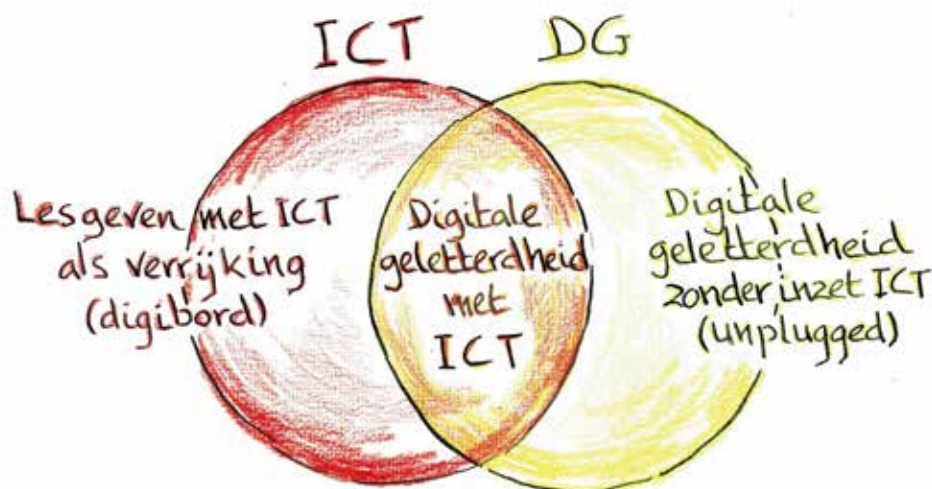 ICT
DG
Lesgeven met ICT
als verrijking
(digibord)
Digitale
geletterdheid
met
ICT
Digitale
geletterdheid
zonder inzet ICT
(unplugged)